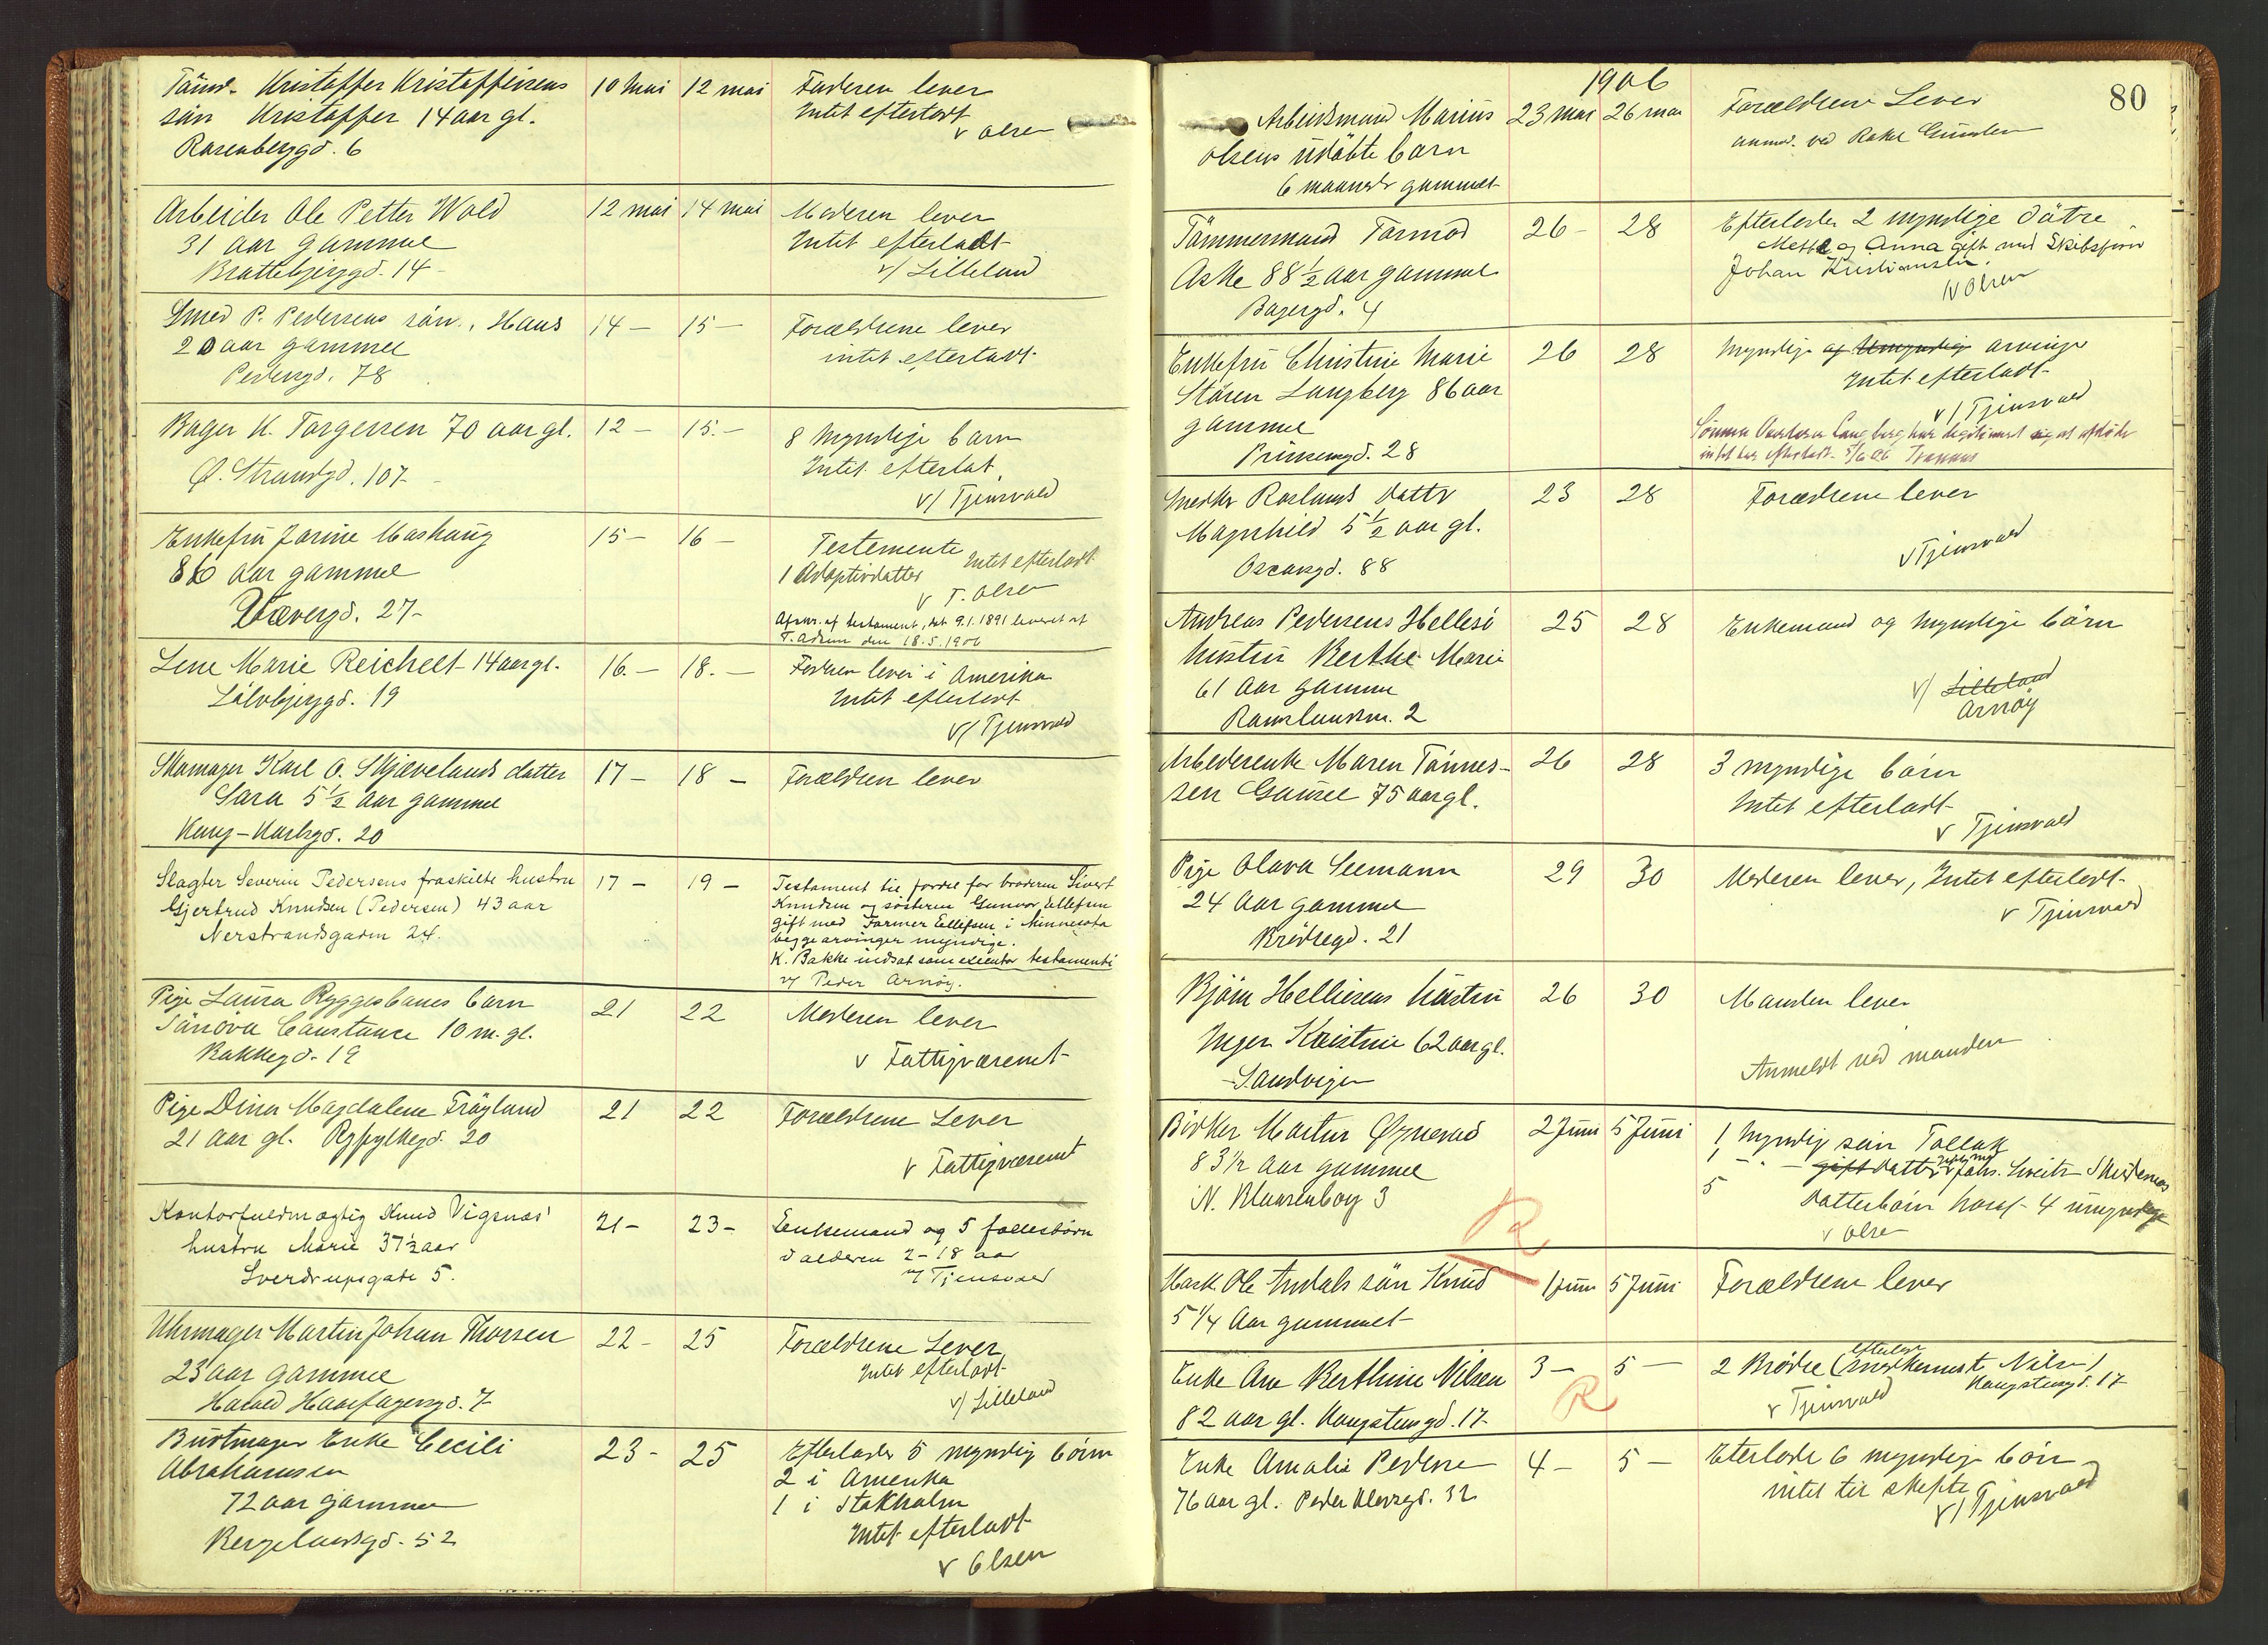 Tömd. Kristoffer Kristoffersens 10 mai 12 mai Faderen lever
sön Kristoffer 14 aar gl. Intet efterladt
Rosenberggd. 6 v Olsen
Arbeider Ole Petter Wold 12 mai 14 mai Moderen lever
31 aar gammel Intet efterladt
Brattebjerggd. 14 v/ Lilleland
Smed P. Pedersens sön, Hans 14 — 15 — Forældrene lever
20 aar gammel intet efterladt
Pedersgd. 78
Bager K. Torgersen 70 aar gl. 12 — 15. — 8 Myndige barn
Ø. Strandgd. 107 Intet efterlat
v/ Tjensvold
Enkefru Jorine Maskaug 15 — 16 — Testemente
86 aar gammel 1 Adoptivdatter Intet efterladt
Vævergd. 27 v T. Olsen
Afskr. af testament, dat 9.1.1891 leveret af
den 18.5.1906
Lene Marie Reichelt 14 aar gl. 16. — 18. — Fadren lever i Amerika
Sölvbjerggd. 19 Intet efterladt
v/ Tjensvold
Skomager Karl O. Skjævelands datter 17 — 18 — Forældren lever
Sara 5½ aar gammel
Kong-Karlsgd. 20
Slagter Severin Pedersens fraskilte hustru 17 — 19 — Testament til fordel for broderen Sivert
Gjertrud Knudsen (Pedersen) 43 aar Knudsen og søsteren Gunvor Ellefsen
Nerstrandsgaden 24. gift med Farmer Ellefsen i Minnesota
begge arvinger myndige.
K. Bakke indsat som executor testamenti
v/ Peder Arnöy.
Pige Laura Ryggesbanes barn 21 22 Moderen lever
Sönöva Constance 10 m. gl.
Bakkegd. 19 v Fattigvæsenet
Pige Dina Magdalene Fröyland 21 22 Forældrene Lever
21 aar gl. Ryfylkegd. 20
v Fattigvæsenet
Kontorfuldmægtig Knud Vigsnæs' 21 — 23 — Enkemand og 5 fællesbörn
hustru Marie 37½ aar i alderen 2 – 18 aar
Sverdrupsgate 5. v/ Tjensvold
Uhrmager Martin Johan Thorsen 22 — 25 Forældrene Lever
23 aar gammel Intet efterladt
Harald Haarfagersgd. 7 v/ Lilleland
Buntmager Enke Cecili 23 — 25 Efterlader 5 myndig börn
Abrahamsen 2 i Amerika
72 aar gammel 1 i Stokholm
Bergelandsgd. 52 Intet efterladt
v Olsen
1906 80
Arbeidsmand Marius 23 mai 26 mai Forældrene Lever
Olsens udöbte barn anm. ved Rakel
6 maaneder gammel
Tömmermand Tormod 26 — 28 Efterlader 2 myndige döttre
Aske 88½ aar gammel Mette og Anna gift med Skibsförer
Bagergd. 4 Johan Kristiansen.
v Olsen
Enkefru Christine Marie 26 28 Myndige og Umyndige arvinger
Stören Langberg 86 aar Intet efterladt
gammel v/ Tjensvold
Prinsensgd. 28 Sønnen Langberg har legitimeret sig at afdöde
intet har efterladt 5/6 06
Snedker Roslands datter 23 28 Forældrene lever
Magnhild 5½ aar gl.
Oscarsgd. 88 v Tjensvold
Andreas Pedersens Hellesö 25 28 Enkemand og Myndige börn
hustru Berthe Marie
61 Aar gamme v/ Lilleland
Ramslandsm. 2 Arnöy
Arbederenke Maren Tönnes- 26 28 3 myndige börn
sen Gausel 75 aar gl. Intet efterladt
v Tjensvold
Pige Olava Seemann 29 30 Moderen lever, Intet efterladt
24 aar gammel v Tjensvold
Brödregd. 21
Björn Helliesens hustru 26 30 Manden lever
Inger Kristine 62 aar gl.
Sandvigen Anmeldt ved manden
Bödker Martin Øgnerud 2 Juni 5 Juni 1 Myndig sön Tollak
83½ aar gammel 1 — gift datter gift m
N. Blaasenborg 3 5 datterbörn hvoraf 4 umyndige
R v Olsen
Mask. Ole Andals sön Knud 1 Juni 5 Juni Forældrene lever
5¼ Aar gammel
Enke Ane Berthine Nilsen 3 — 5 — 2 Brödre
82 aar gl. Kongstensgd. 17 Kongstensgd. 17
R v Tjensvold
Enke Amalie Pedersen 4 — 5 — Eterlade 6 myndige börn
76 aar gl. Peder Klowsgd. 32 intet til skifte
v/ Tjensvold